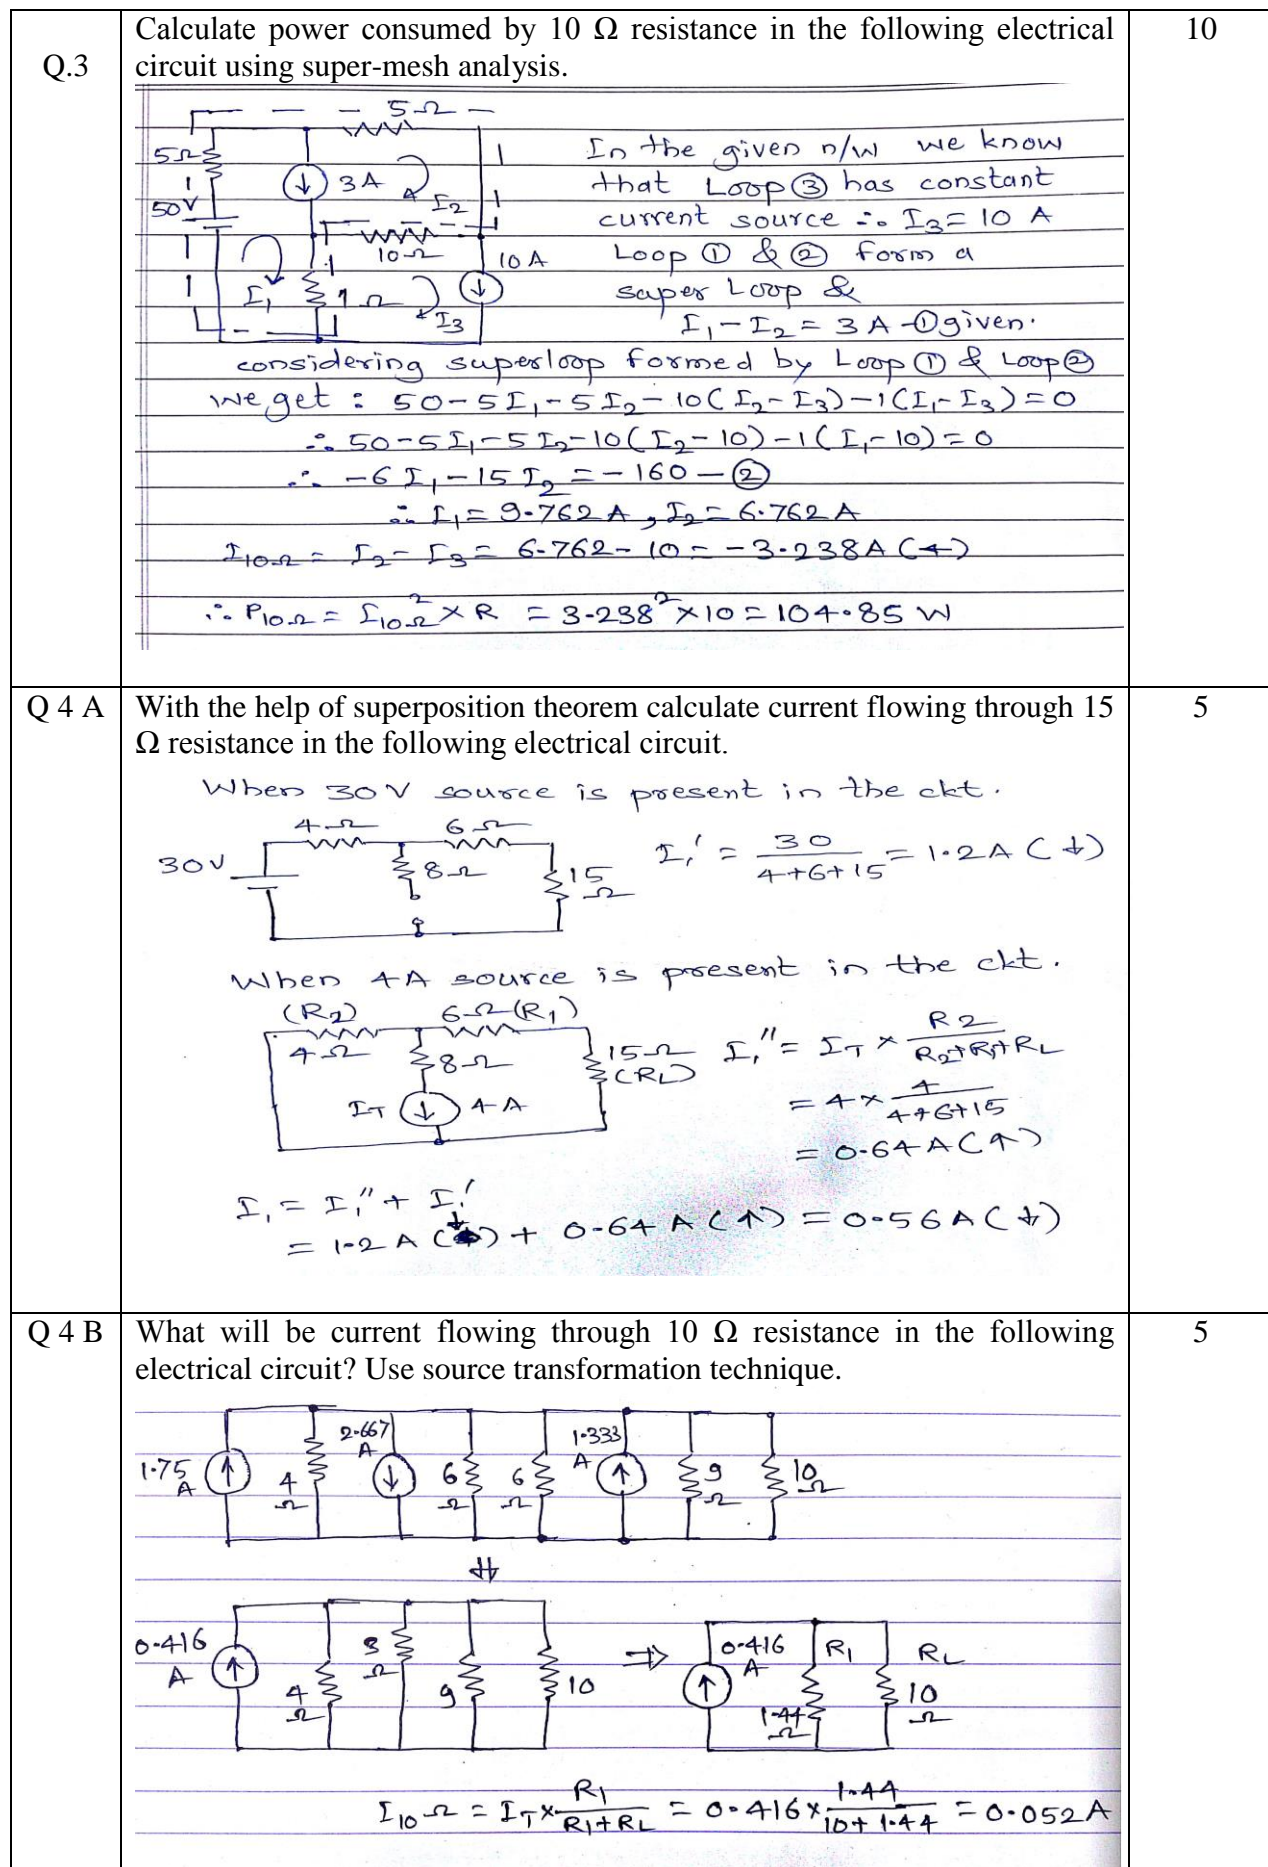 Calculate power consumed by 10 Ω resistance in the following electrical 10
Q.3 circuit using super-mesh analysis.
5Ω
5Ω
50V
3A
I2
10Ω
10 A
I1
1Ω
I3
In the given n/w we know
that Loop ③ has constant
current source ∴ I3 = 10 A
Loop ① & ② form a
super Loop &
I1 - I2 = 3 A -① given.
considering superloop formed by Loop ① & Loop ②
we get : 50-5I1-5I2-10(I2-I3)-1(I1-I3)=0
∴ 50-5I1-5I2-10(I2-10)-1(I1-10)=0
∴ -6I1-15I2 = -160 -②
∴ I1 = 9.762 A, I2 = 6.762 A
I10Ω = I2-I3 = 6.762-10 = -3.238A (←)
∴ P10Ω = I10Ω² × R = 3.238² × 10 = 104.85 W
Q 4 A With the help of superposition theorem calculate current flowing through 15 5
Ω resistance in the following electrical circuit.
When 30V source is present in the ckt.
4Ω 6Ω
30V 8Ω 15Ω
I1' = 30/(4+6+15) = 1.2A (↓)
When 4A source is present in the ckt.
(R2) 6Ω(R1)
4Ω 8Ω 15Ω (RL)
IT 4A
I1'' = IT × R2/(R2+R1+RL)
= 4 × 4/(4+6+15)
= 0.64A (↑)
I1 = I1'' + I1'
= 1.2 A (↓) + 0.64 A (↑) = 0.56A (↓)
Q 4 B What will be current flowing through 10 Ω resistance in the following 5
electrical circuit? Use source transformation technique.
1.75 A 4Ω 2.667 A 6Ω 6Ω 1.333 A 9Ω 10Ω
⇓
0.416 A 4Ω 3Ω 9 10 ⇒ 0.416 A R1 1.44Ω RL 10Ω
I10Ω = IT × R1/(R1+RL) = 0.416 × 1.44/(10+1.44) = 0.052A